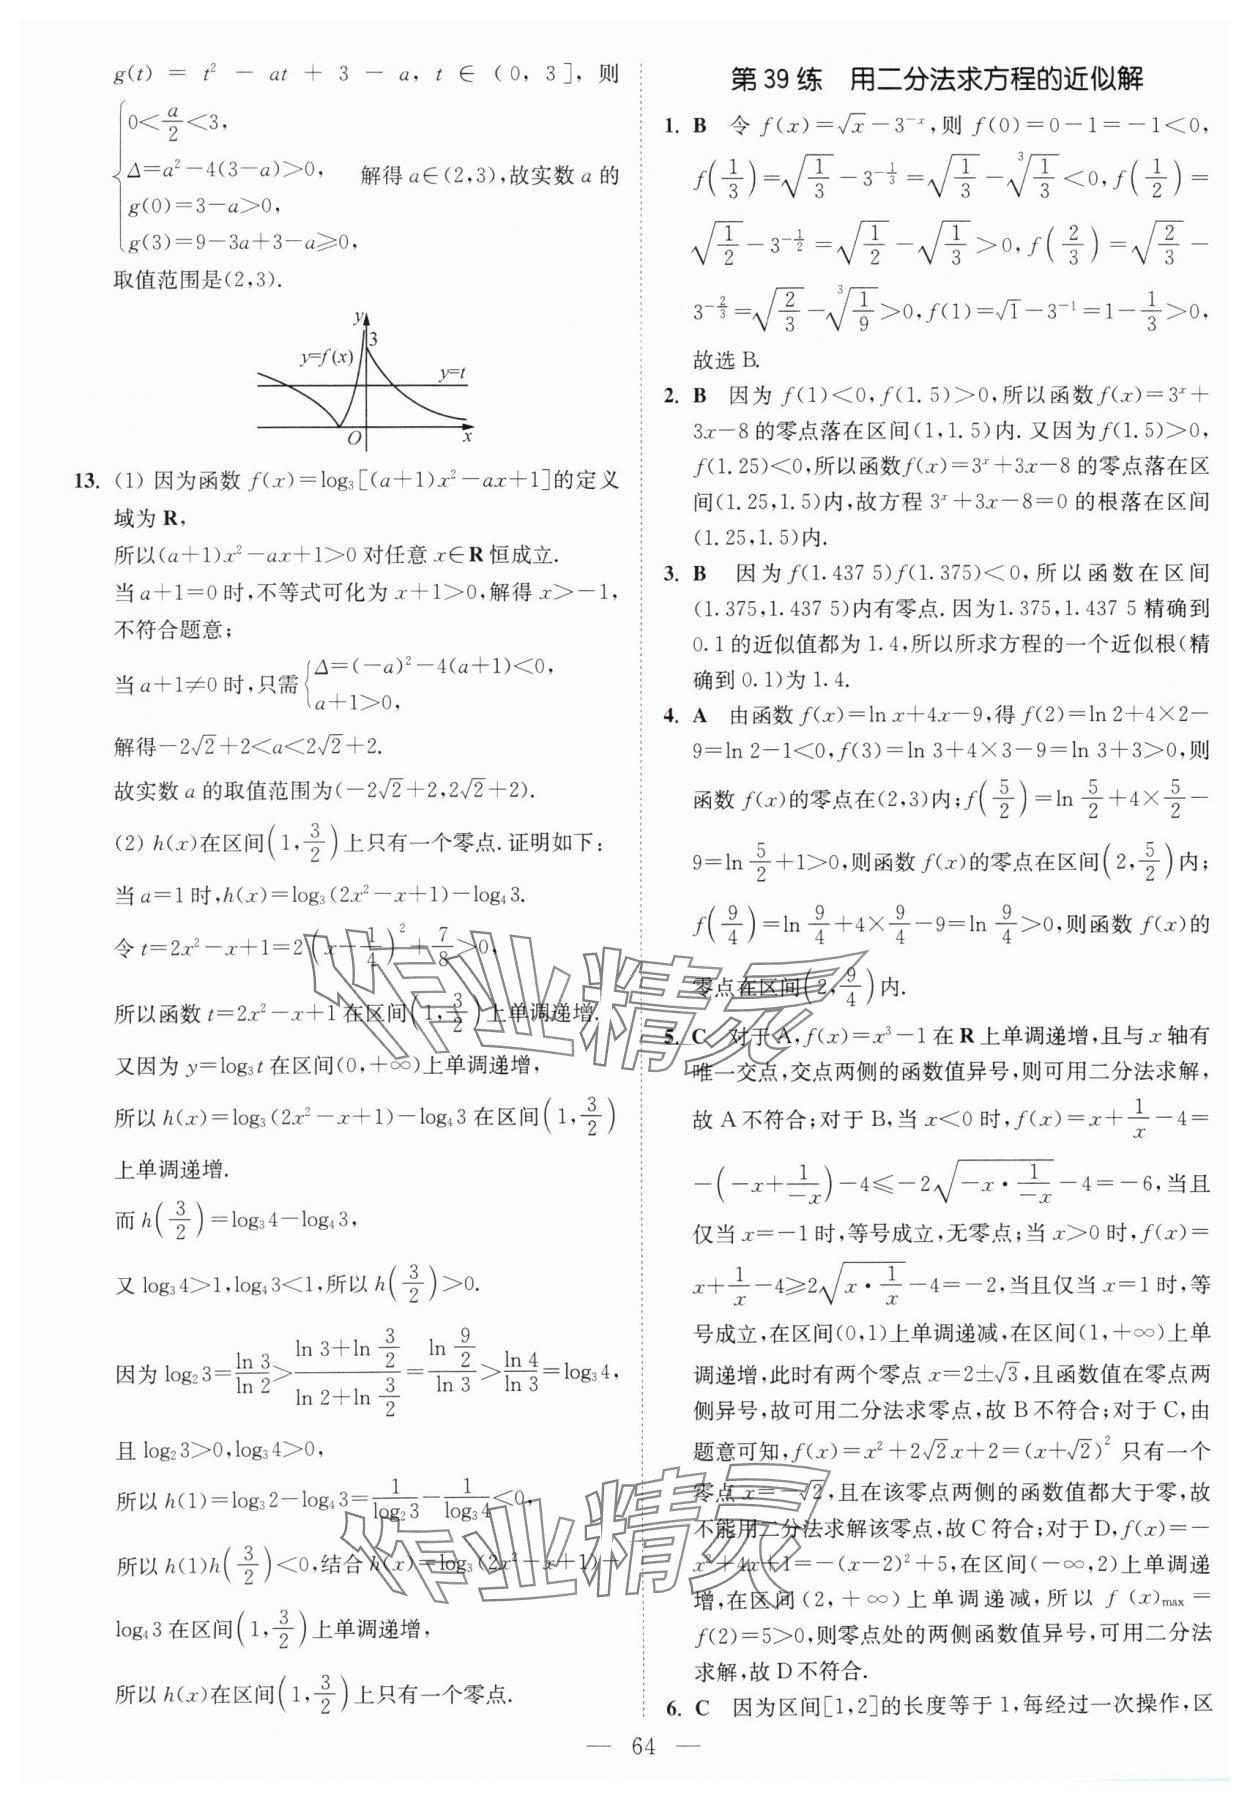 g(t) = t² − at + 3 − a, t ∈ (0, 3], 则
0<a/2<3,
Δ=a²−4(3−a)>0,
g(0)=3−a>0,
g(3)=9−3a+3−a⩾0,
解得 a∈(2,3),故实数 a 的
取值范围是(2,3).
y
3
y=f(x)
y=t
O
x
13. (1) 因为函数 f(x)=log₃[(a+1)x²−ax+1]的定义
域为 R,
所以(a+1)x²−ax+1>0 对任意 x∈R 恒成立.
当 a+1=0 时,不等式可化为 x+1>0,解得 x>−1,
不符合题意;
当 a+1≠0 时,只需{Δ=(−a)²−4(a+1)<0,
a+1>0,
解得−2√2+2<a<2√2+2.
故实数 a 的取值范围为(−2√2+2,2√2+2).
(2) h(x)在区间(1,3/2)上只有一个零点.证明如下:
当 a=1 时,h(x)=log₃(2x²−x+1)−log₄3.
令 t=2x²−x+1=2(x−1/4)²+7/8>0,
所以函数 t=2x²−x+1 在区间(1,3/2)上单调递增.
又因为 y=log₃t 在区间(0,+∞)上单调递增,
所以 h(x)=log₃(2x²−x+1)−log₄3 在区间(1,3/2)
上单调递增.
而 h(3/2)=log₃4−log₄3,
又 log₃4>1,log₄3<1,所以 h(3/2)>0.
因为 log₂3=ln 3/ln 2>(ln 3+ln 3/2)/(ln 2+ln 3/2)=(ln 9/2)/(ln 3)>ln 4/ln 3=log₃4,
且 log₂3>0,log₃4>0,
所以 h(1)=log₃2−log₄3=1/log₂3−1/log₃4<0,
所以 h(1)h(3/2)<0,结合 h(x)=log₃(2x²−x+1)+
log₄3 在区间(1,3/2)上单调递增,
所以 h(x)在区间(1,3/2)上只有一个零点.
第 39 练 用二分法求方程的近似解
1. B 令 f(x)=√x−3⁻ˣ,则 f(0)=0−1=−1<0,
f(1/3)=√(1/3)−3^(−1/3)=√(1/3)−³√(1/3)<0,f(1/2)=
√(1/2)−3^(−1/2)=√(1/2)−√(1/3)>0,f(2/3)=√(2/3)−
3^(−2/3)=√(2/3)−³√(1/9)>0,f(1)=√1−3⁻¹=1−1/3>0,
故选 B.
2. B 因为 f(1)<0,f(1.5)>0,所以函数 f(x)=3ˣ+
3x−8 的零点落在区间(1,1.5)内.又因为 f(1.5)>0,
f(1.25)<0,所以函数 f(x)=3ˣ+3x−8 的零点落在区
间(1.25,1.5)内,故方程 3ˣ+3x−8=0 的根落在区间
(1.25,1.5)内.
3. B 因为 f(1.437 5)f(1.375)<0,所以函数在区间
(1.375,1.437 5)内有零点.因为1.375,1.437 5 精确到
0.1 的近似值都为 1.4,所以所求方程的一个近似根(精
确到 0.1)为 1.4.
4. A 由函数 f(x)=ln x+4x−9,得 f(2)=ln 2+4×2−
9=ln 2−1<0,f(3)=ln 3+4×3−9=ln 3+3>0,则
函数 f(x)的零点在(2,3)内;f(5/2)=ln 5/2+4×5/2−
9=ln 5/2+1>0,则函数 f(x)的零点在区间(2,5/2)内;
f(9/4)=ln 9/4+4×9/4−9=ln 9/4>0,则函数 f(x)的
零点在区间(2,9/4)内.
5. C 对于 A,f(x)=x³−1 在 R 上单调递增,且与 x 轴有
唯一交点,交点两侧的函数值异号,则可用二分法求解,
故 A 不符合;对于 B,当 x<0 时,f(x)=x+1/x−4=
−(−x+1/−x)−4⩽−2√(−x·1/−x)−4=−6,当且
仅当 x=−1 时,等号成立,无零点;当 x>0 时,f(x)=
x+1/x−4⩾2√(x·1/x)−4=−2,当且仅当 x=1 时,等
号成立,在区间(0,1)上单调递减,在区间(1,+∞)上单
调递增,此时有两个零点 x=2±√3,且函数值在零点两
侧异号,故可用二分法求零点,故 B 不符合;对于 C,由
题意可知,f(x)=x²+2√2x+2=(x+√2)² 只有一个
零点 x=−√2,且在该零点两侧的函数值都大于零,故
不能用二分法求解该零点,故 C 符合;对于 D,f(x)=−
x²+4x+1=−(x−2)²+5,在区间(−∞,2)上单调递
增,在区间(2,+∞)上单调递减,所以 f(x)max=
f(2)=5>0,则零点处的两侧函数值异号,可用二分法
求解,故 D 不符合.
6. C 因为区间[1,2]的长度等于 1,每经过一次操作,区
— 64 —
作业精灵
作业精灵